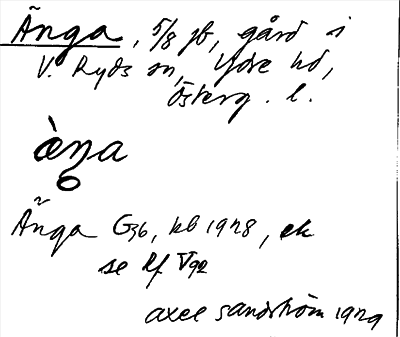 Änga, 5/8 jb, gård i
V. Ryds sn, Ydre hd,
Österg. l.
àŋa
Änga G36, kb 1928, ek
se Rf V92
Axel Sandström 1929